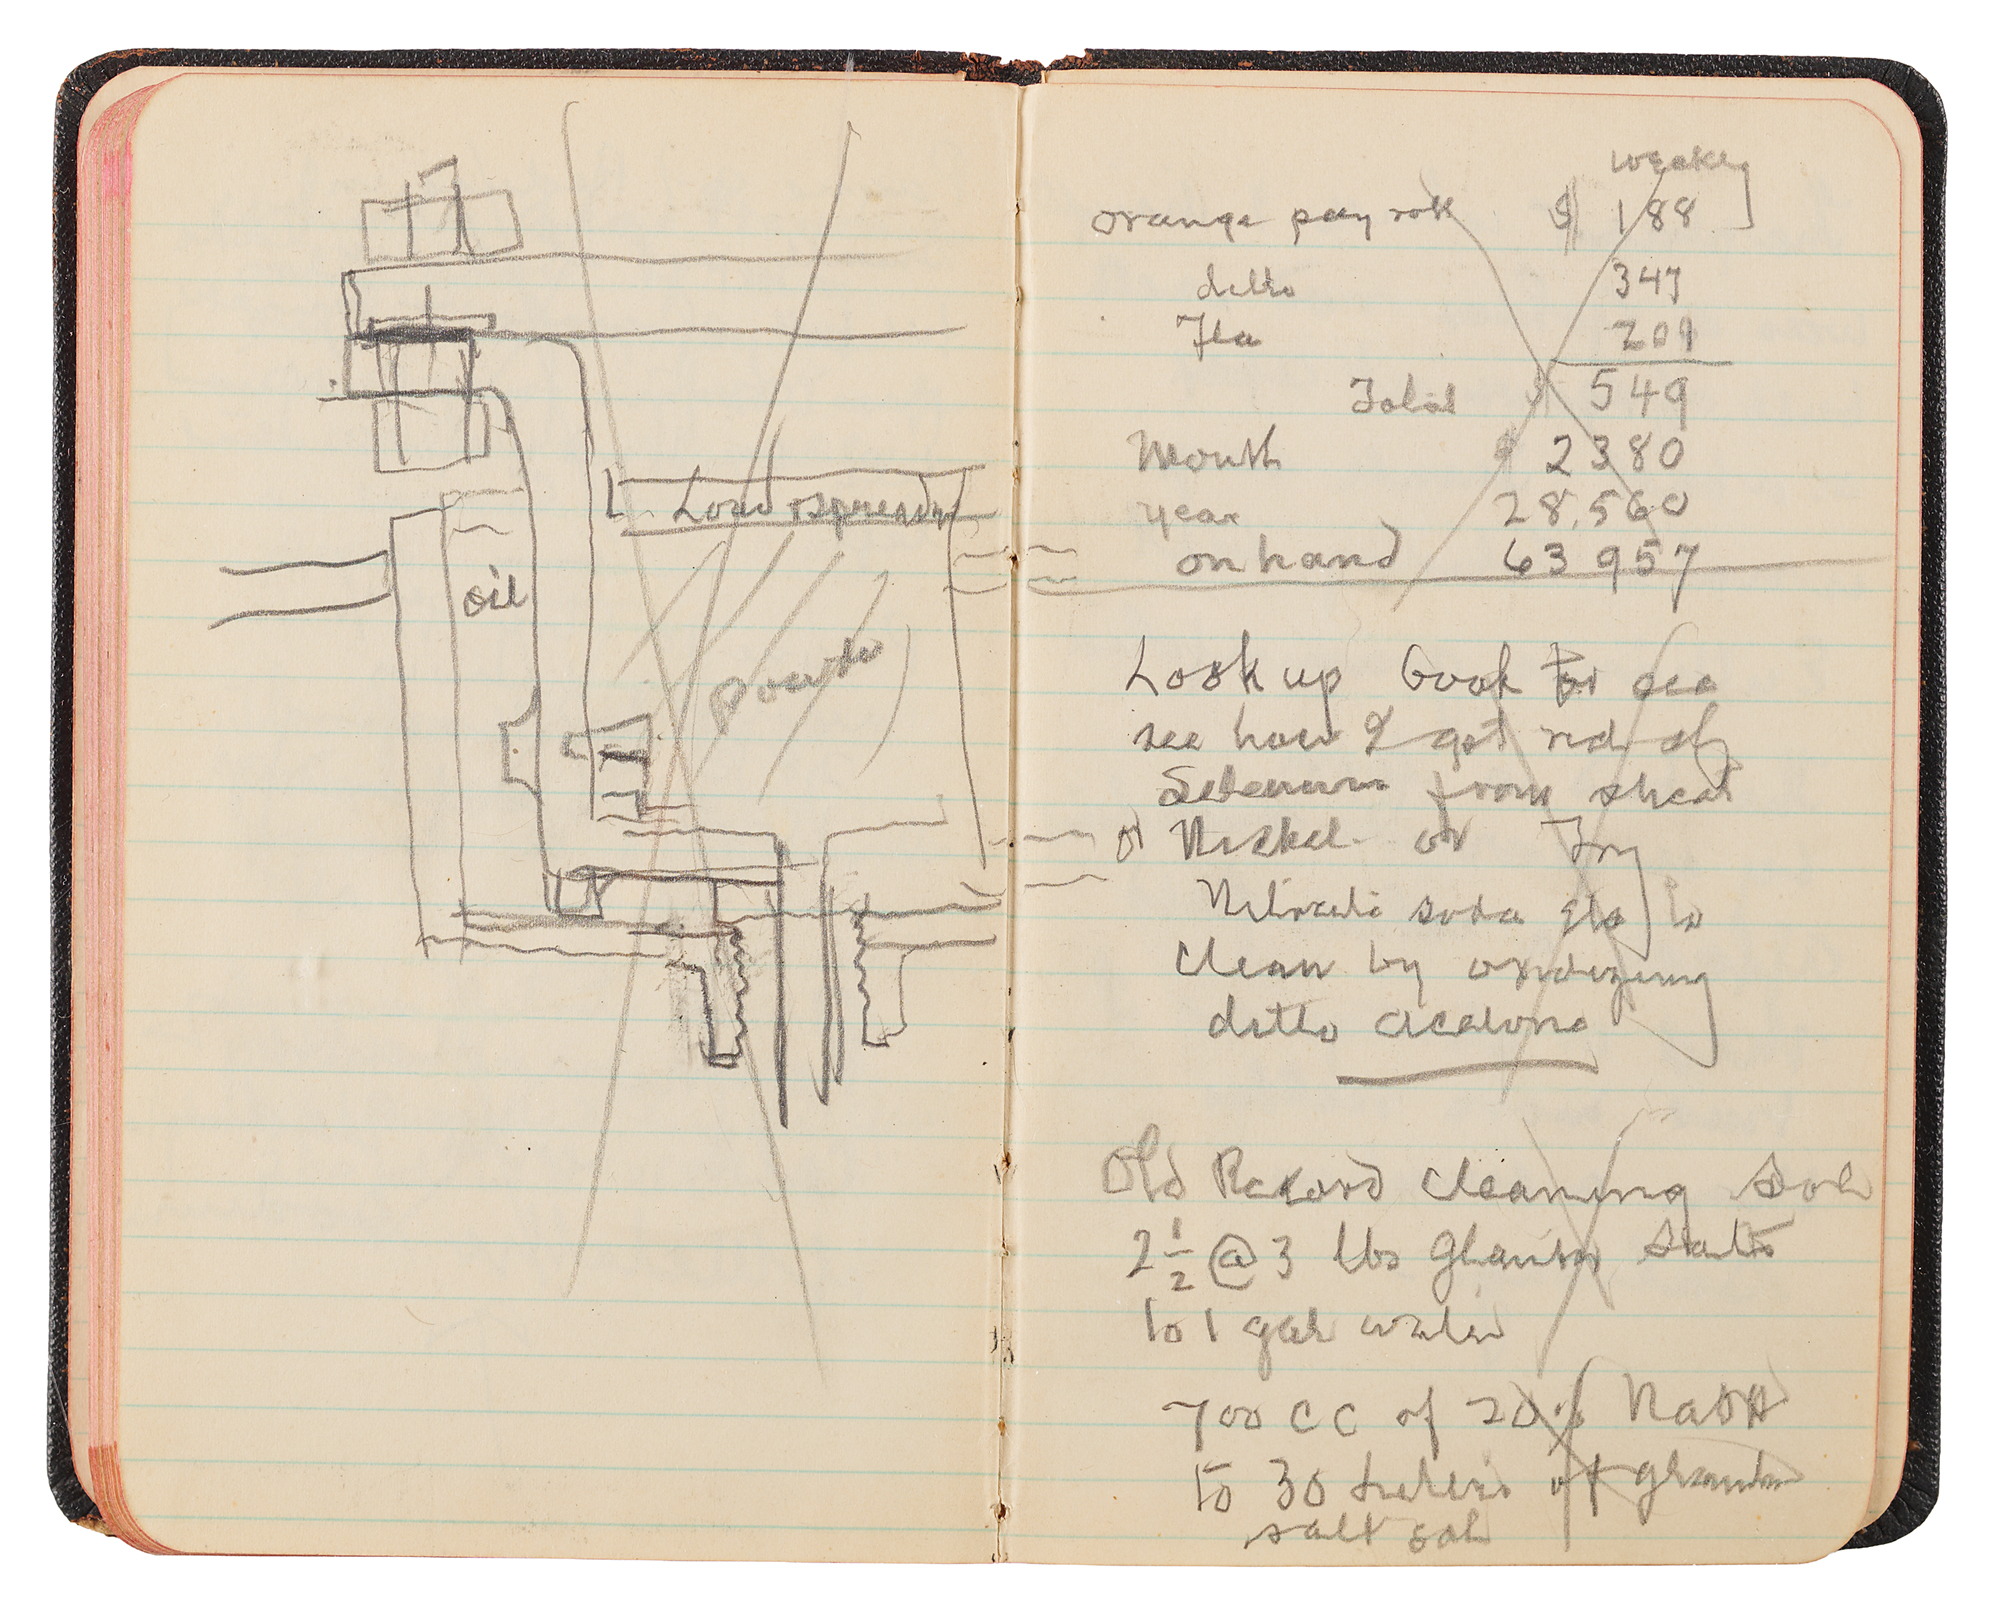 oil
Load spreads
powder
weekly
orange pay roll $ 188
ditto 347
Fla 201
Total $ 549
Month $ 2380
year 28,560
on hand 63 957
Look up book for
see how I got rid of
Selenium from sheet
Nickel or Try
Nitrate soda
clean by oxidizing
ditto
Old Record Cleaning Sol
2 1/2 @ 3 lbs Glauber Salts
to 1 gal water
700 CC of 20% NaOH
to 30 liters of glauber
salt sol